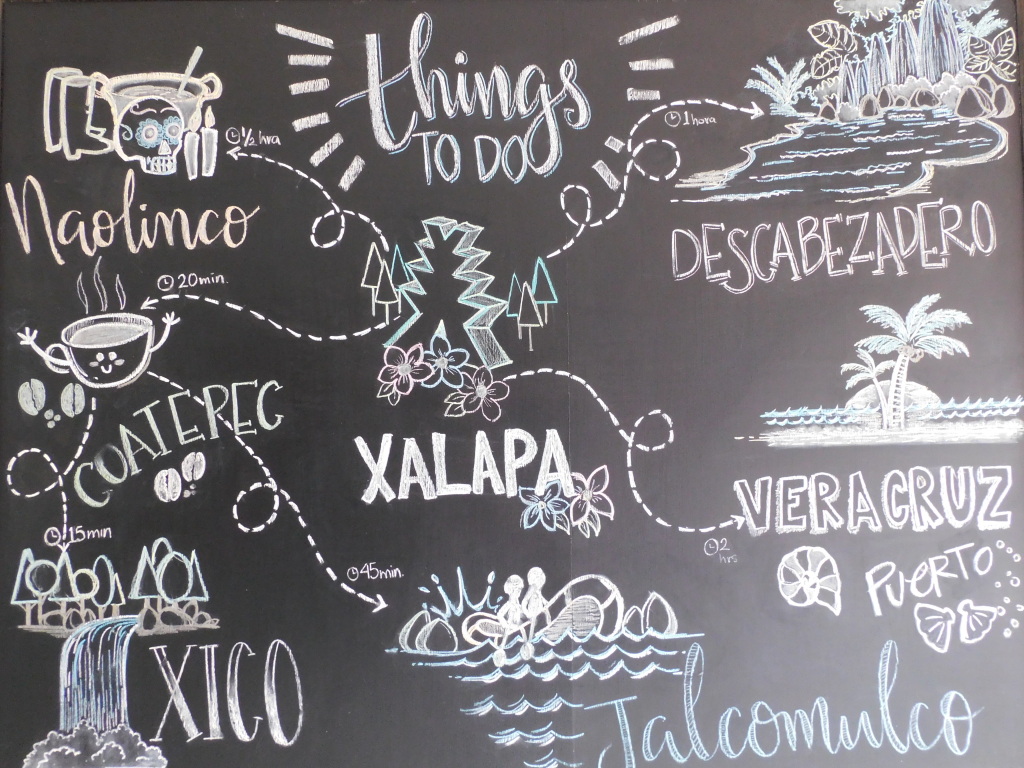 things
TO DO
1/2 hra
Naolinco
1 hora
DESCABEZADERO
20 min.
COATEPEC
XALAPA
VERACRUZ
PUERTO
2
hrs
15 min
XICO
45 min.
Jalcomulco